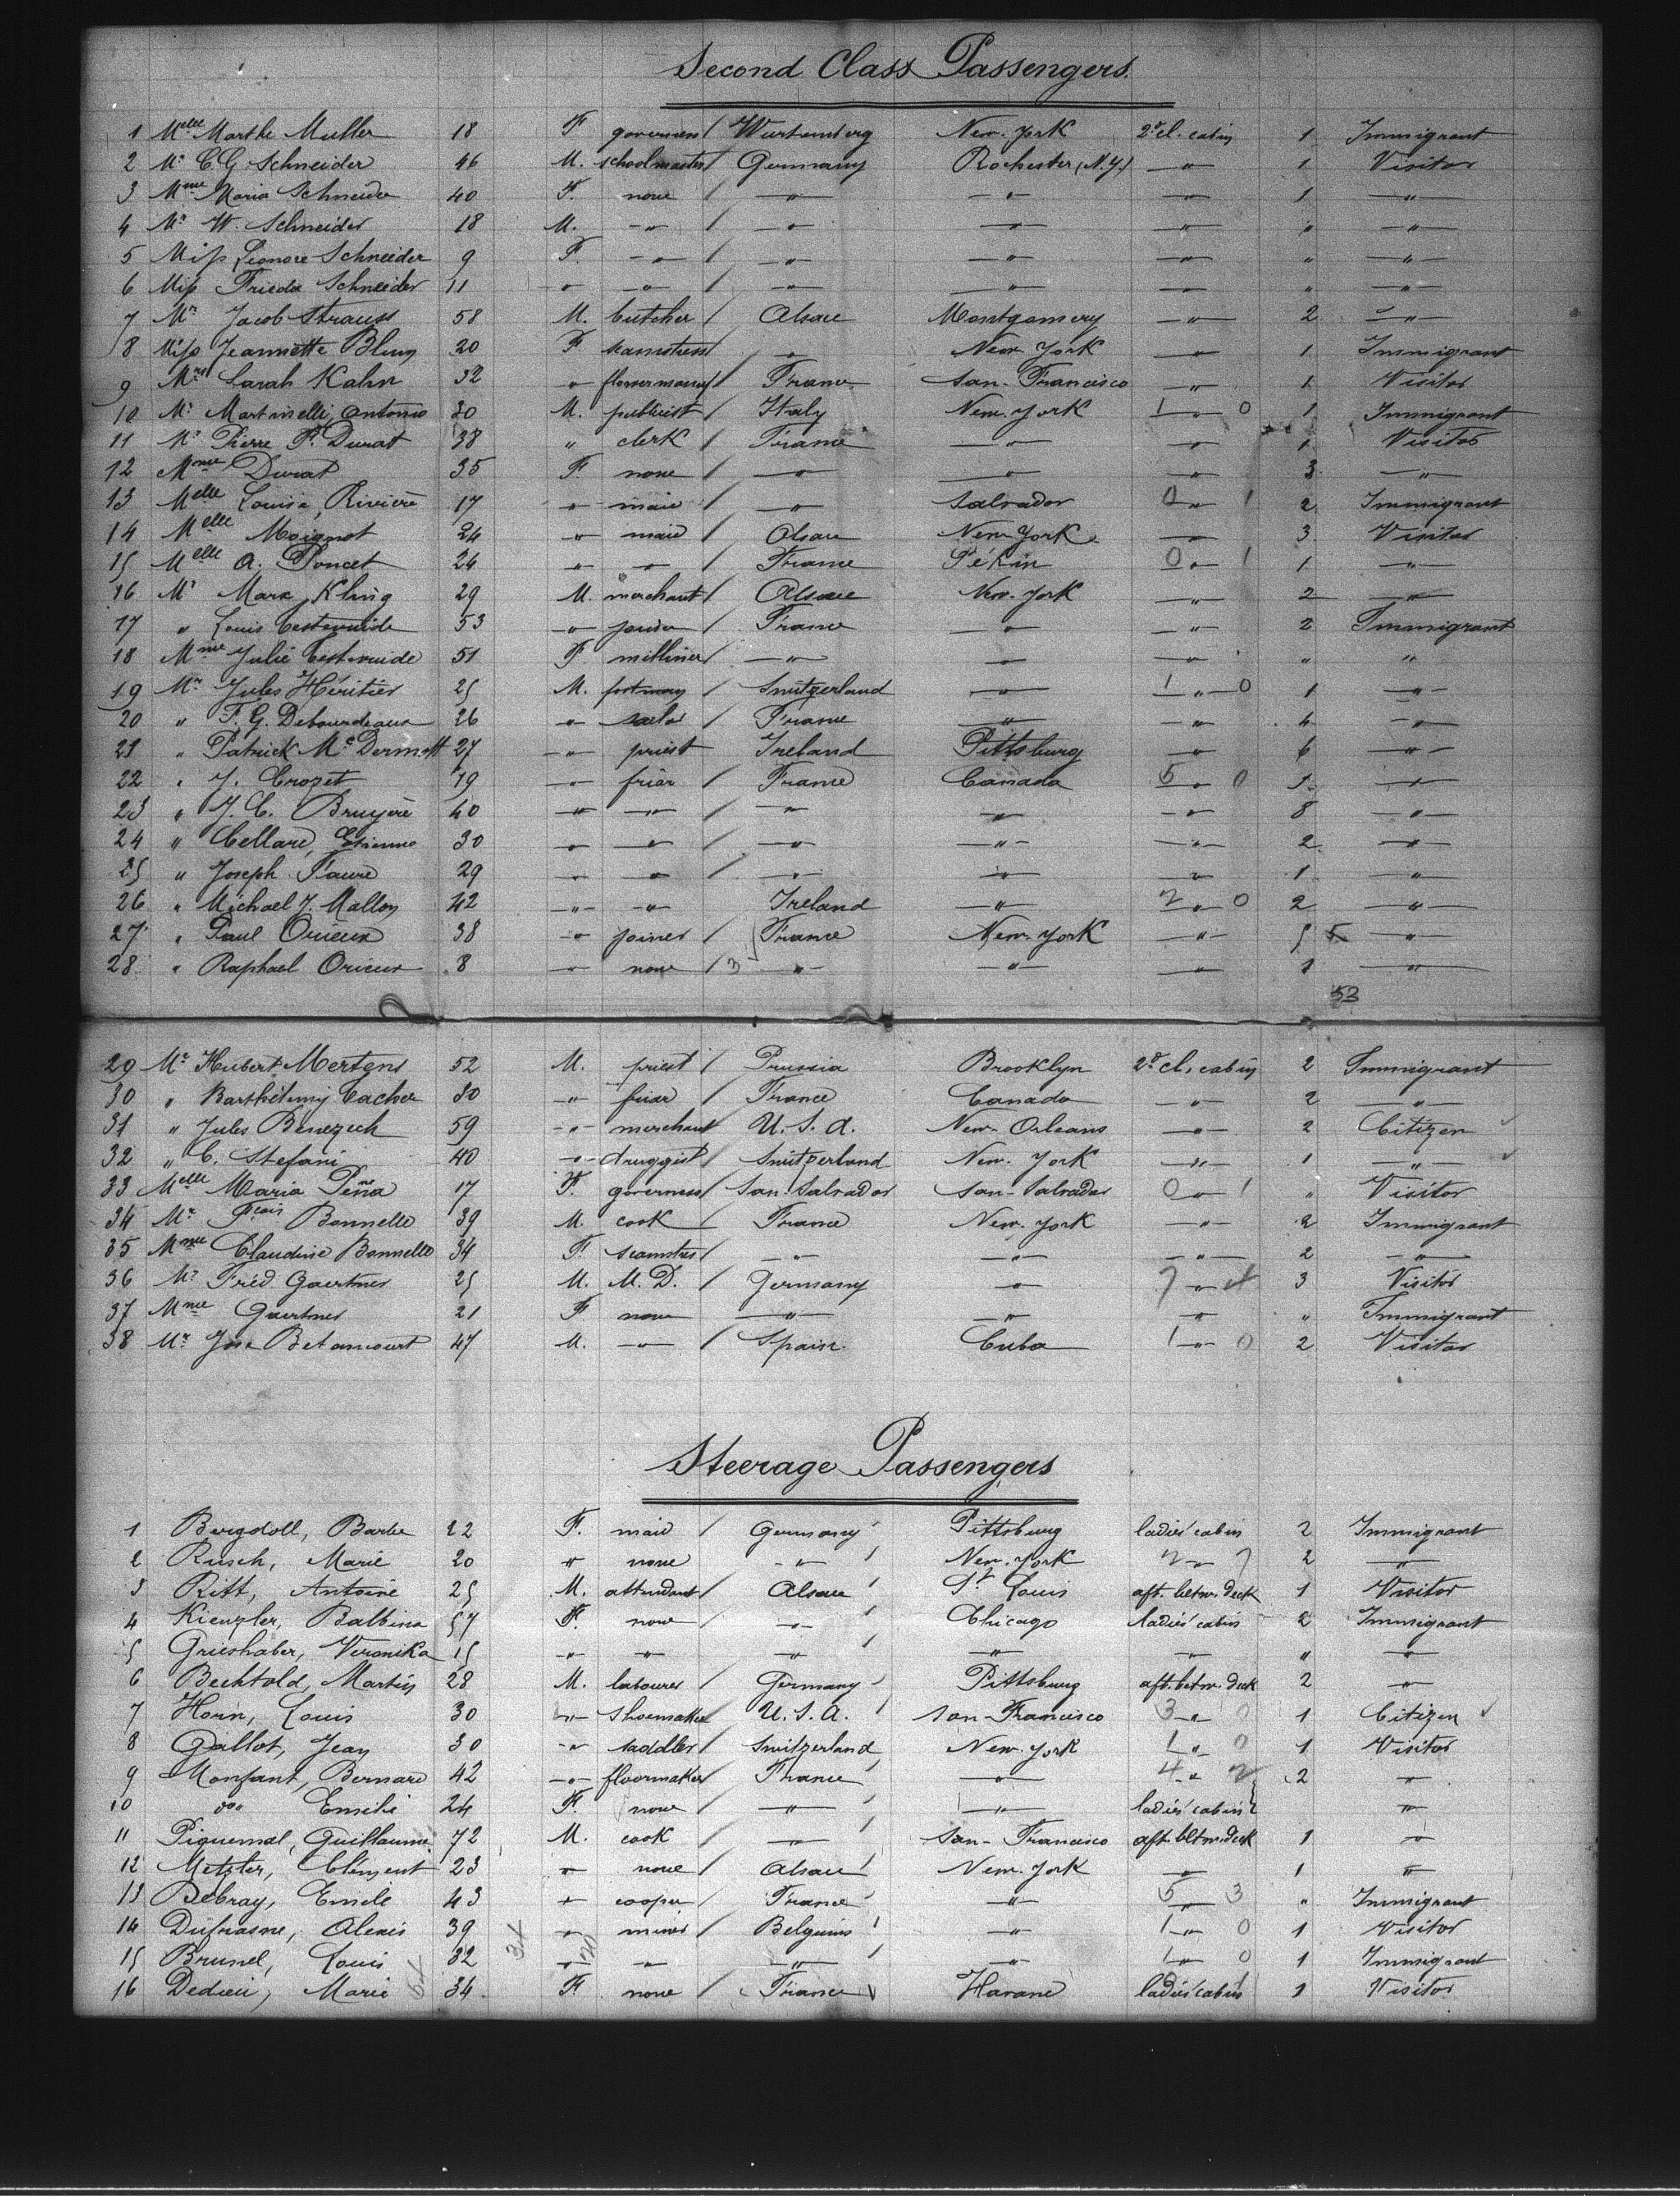 Second Class Passengers.
1 Melle Marthe Muller 18 F governess / Wurtemberg New-York 2d cl. cabin 1 Immigrant
2 Mr C. G. Schneider 46 M. schoolmaster / Germany Rochester (N.Y.) -"- 1 Visitor
3 Mme Maria Schneider 40 F. none / -"- -"- -"- 1 -"-
4 Mr W. Schneider 18 M. -"- / -"- -"- -"- " -"-
5 Miss Leonore Schneider 9 F. -"- / -"- -"- -"- " -"-
6 Miss Frieda Schneider 11 -"- -"- / -"- -"- -"- " -"-
7 Mr Jacob Strauss 58 M. butcher / Alsace Montgomery -"- 2 -"-
8 Miss Jeannette Blum 20 F seamstress / -"- New-York -"- 1 Immigrant
9 Mrs Sarah Kahn 32 -"- / France San-Francisco -"- 1 Visitor
10 Mr Martinelli, Antonio 30 M. publicist / Italy New-York 1 -"- 0 1 Immigrant
11 Mr Pierre P. Durat 38 " clerk / France -"- -"- 1 Visitor
12 Mme Durat 35 F. none / -"- -"- -"- 3 -"-
13 Melle Louise Rivière 17 -"- maid / -"- Salvador 0 -"- 1 2 Immigrant
14 Melle Moignot 24 -"- maid / Alsace New-York -"- 3 Visitor
15 Melle A. Poncet 24 -"- -"- / France Pékin 0 -"- 1 1 -"-
16 Mr Marx Kling 29 M. merchant / Alsace New-York -"- 2 -"-
17 " Louis Testevuide 53 -"- / France -"- -"- 2 Immigrant
18 Mme Julie Testevuide 51 F milliner / -"- -"- -"- " "
19 Mr Jules Héritier 25 M. footman / Switzerland -"- 1 -"- 0 1 -"-
20 " F. G. Debourdeaux 26 -"- sailor / France -"- -"- 4 -"-
21 " Patrick Mc Dermott 27 -"- priest Ireland Pittsburg -"- 6 -"-
22 " J. Crozet 19 -"- friar / France Canada 5 -"- 0 1 -"-
23 " J. C. Bruyère 40 -"- -"- / -"- -"- -"- 8 -"-
24 " Cellard, Etienne 30 -"- -"- / -"- -"- -"- 2 -"-
25 " Joseph Faure 29 -"- -"- / -"- -"- -"- 1 -"-
26 " Michael J. Mallon 42 -"- -"- Ireland -"- 2 -"- 0 2 -"-
27 " Paul Orieux 38 -"- joiner / France New-York -"- 5 5 -"-
28 " Raphael Orieux 8 -"- none / 3 -"- -"- -"- 1 -"-
53
29 Mr Hubert Mertens 52 M. priest / Prussia Brooklyn 2d cl. cabin 2 Immigrant
30 " Barthélemy Vacher 30 -"- friar / France Canada -"- 2 -"-
31 " Jules Benezech 59 -"- merchant U.S.A. New-Orleans -"- 2 Citizen
32 " C. Stefani 40 -"- druggist / Switzerland New-York -"- 1 -"-
33 Melle Maria Peña 17 F. governess / San-Salvador San-Salvador 0 -"- 1 " Visitor
34 Mr Fcois Bonnelle 39 M. cook / France New-York -"- 2 Immigrant
35 Mme Claudine Bonnelle 34 F. seamstress / -"- -"- -"- 2 -"-
36 Mr Fréd Gaertner 25 M. M.D. / Germany -"- 7 -"- 4 3 Visitor
37 Mme Gaertner 21 F none / -"- -"- -"- " Immigrant
38 Mr José Betancourt 47 M. -"- / Spain. Cuba 1 -"- 0 2 Visitor
Steerage Passengers
1 Bergdoll, Barbe 22 F. maid / Germany Pittsburg ladies' cabin 2 Immigrant
2 Rusch, Marie 20 " none -"- New-York -"- 2 -"-
3 Ritt, Antoine 25 M. attendant / Alsace St Louis aft. betw. deck 1 Visitor
4 Kienzler, Balbina 57 F. none / -"- Chicago ladies' cabin 2 Immigrant
5 Grieshaber, Veronika 15 -"- -"- -"- -"- -"- " -"-
6 Bechtold, Martin 28 M. labourer Germany Pittsburg aft. betw. deck 2 -"-
7 Horn, Louis 30 -"- shoemaker U.S.A. San-Francisco 3 -"- 0 1 Citizen
8 Gallot, Jean 30 -"- saddler / Switzerland New-York 1 -"- 0 1 Visitor
9 Monfant, Bernard 42 -"- floormaker / France -"- 4 -"- 2 2 -"-
10 do Emilie 24 F. none / -"- -"- ladies' cabin -"-
11 Piquemal, Guillaume 72 M. cook / -"- San-Francisco aft. betw. deck 1 -"-
12 Metzler, Clément 23 -"- none / Alsace New-York -"- 1 -"-
13 Debray, Emile 43 -"- cooper / France -"- 5 -"- 3 " Immigrant
14 Dufrasne, Alexis 39 -"- miner / Belgium -"- 1 -"- 0 1 Visitor
15 Brunel, Louis 32 -"- -"- -"- -"- 1 -"- 0 1 Immigrant
16 Dedieu, Marie 34 F. none / France Havane ladies' cabin 1 Visitor